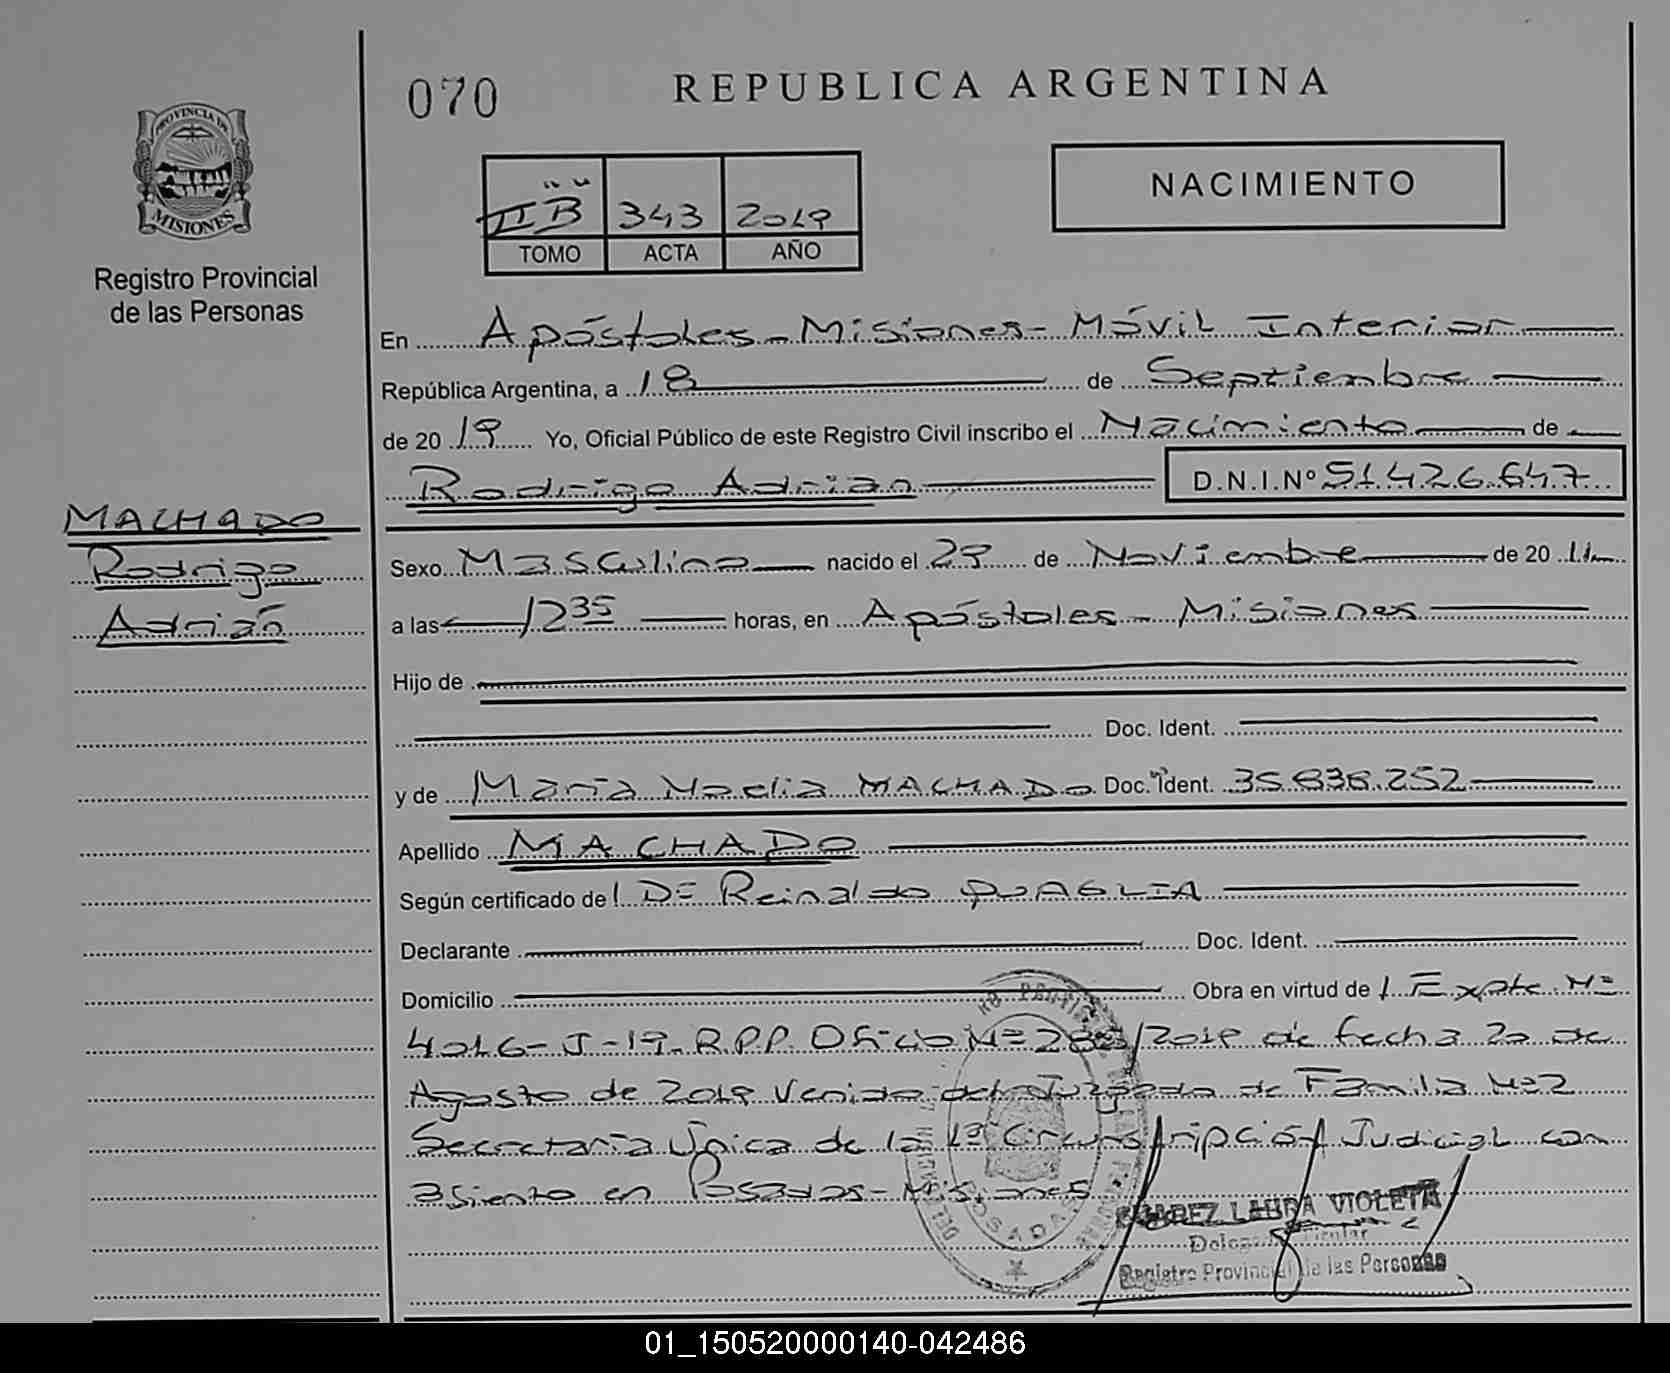 070
REPUBLICA ARGENTINA
PROVINCIA DE
MISIONES
Registro Provincial
de las Personas
II "B" 343 2019
TOMO ACTA AÑO
NACIMIENTO
En Apóstoles - Misiones - Móvil Interior
República Argentina, a 18 de Septiembre
de 2019 Yo, Oficial Público de este Registro Civil inscribo el Nacimiento de
Rodrigo Adrián D.N.I.Nº 51.426.647
MACHADO
Rodrigo
Adrián
Sexo Masculino nacido el 29 de Noviembre de 2011
a las 12 35 horas, en Apóstoles - Misiones
Hijo de
Doc. Ident.
y de María Noelia MACHADO Doc. Ident. 35.838.252
Apellido MACHADO
Según certificado de l DE Reinaldo QUAGLIA
Declarante Doc. Ident.
Domicilio Obra en virtud de l Expte. Nº
4016-J-19 R.P.P. Oficio Nº /2019 de fecha 20 de
Agosto de 2019 venido del Juzgado de Familia Nº 2
Secretaría Única de la 1ª Circunscripción Judicial con
asiento en Posadas - Misiones
POSADAS
SUAREZ LAURA VIOLETA
Titular
Registro Provincial de las Personas
01_150520000140-042486